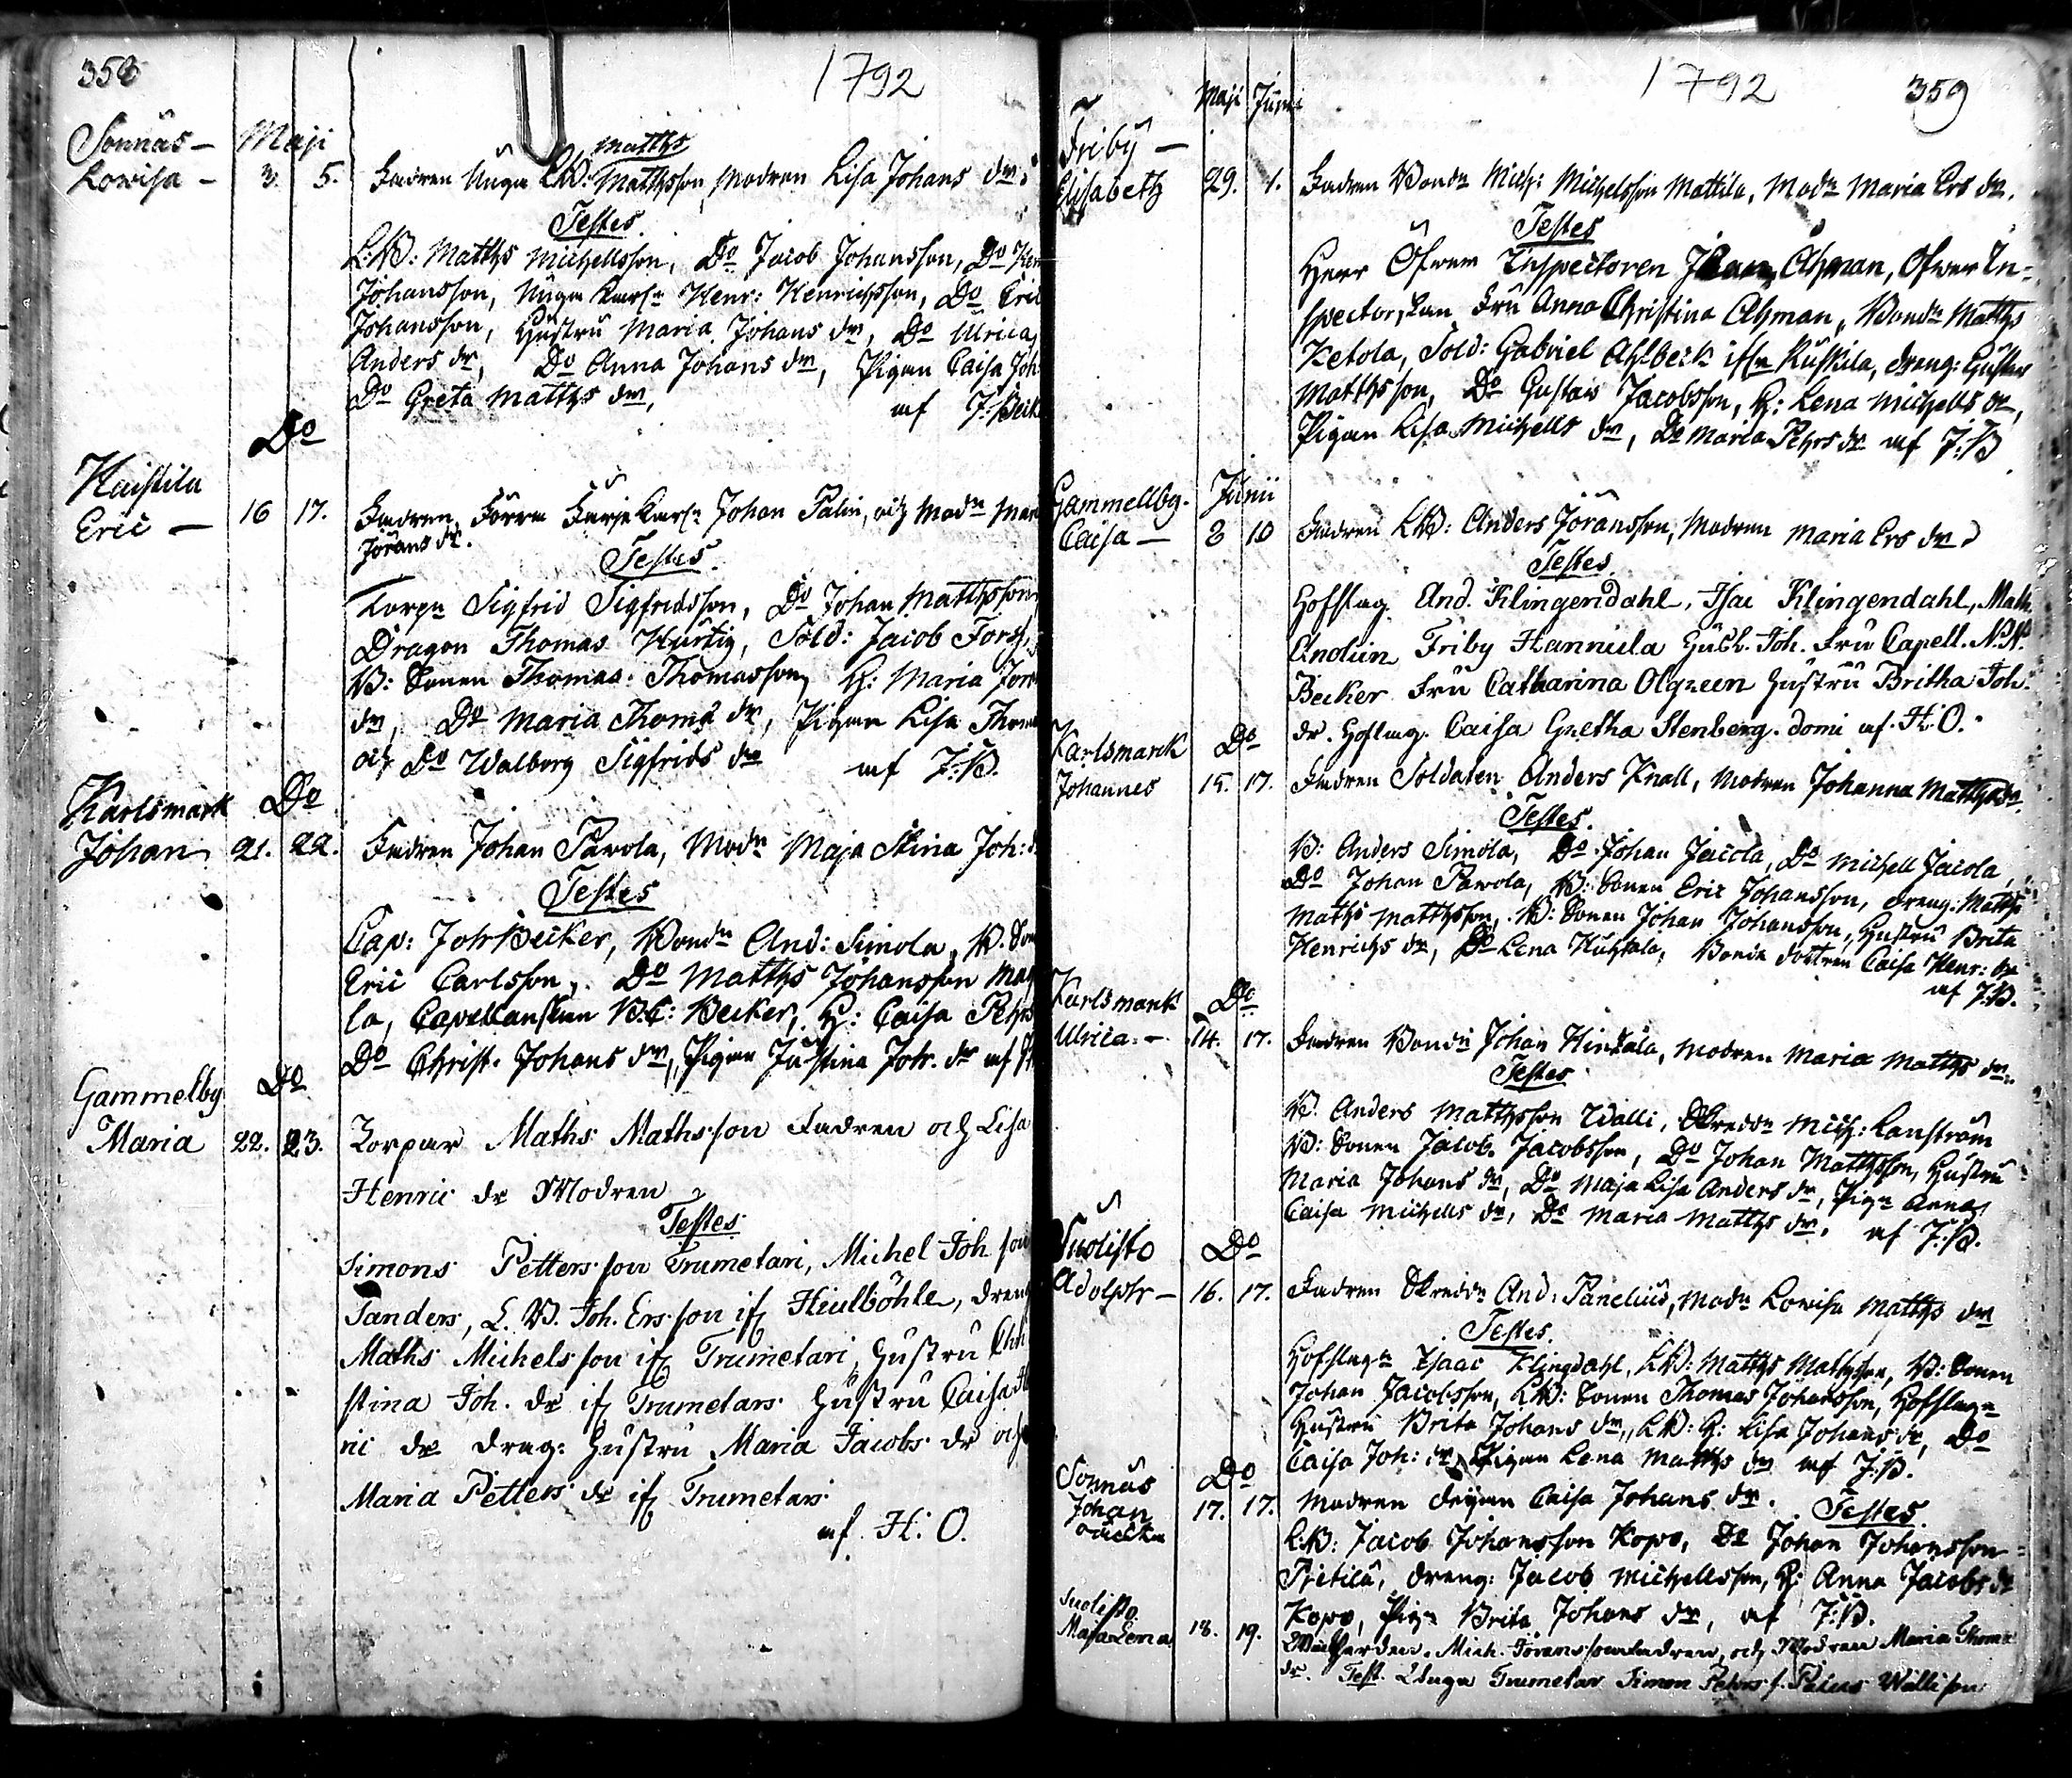 358
1792
Sonnäs –
Maji
Matths
Lovisa – 3. 5. Fadren Unga LB: Matthsson, Modren Lisa Johans dr.
Testes.
L:B: Matths Michellsson, Do Jacob Johansson, Do
Johansson, Unga Karln Henr: Henrichsson, Do Eric
Johansson, Hustru Maria Johans dr, Do Ulrica
Anders dr, Do Anna Johans dr, Pigan Caisa Joh:
Do Greta Matths dr, af J: Beck
Do
Eric – 16 17. Fadren, Förra Johan Palin, och Modn
Jörans dr.
Testes.
Torpn Sigfrid Sigfridsson, Do Johan Matthsson
Dragon Thomas Hurtig, Sold: Jacob Fors
B: Sonen Thomas Thomasson, H: Maria
dr, Do Maria Thoms dr, Pigan Lisa Thom
och Do Walborg Sigfrids dr af J:B.
Karlsmark Do
Johan 21. 22. Fadren Johan Pavola, Modn Maja Stina Joh: d
Testes
Cap: Joh Becker, Bondn And: Simola, B. Son
Eric Carlsson, Do Matths Johansson
la, Capellanskan B.C: Becker, H: Caisa Pehrs
Do Christ. Johans dr, Pigan Justina Joh. dr af
Gammelby Do
Maria 22. 23. Torpar Maths Mathsson Fadren och Lisa
Henric dr Modren
Testes
Simons Pettersson Trumetari, Michel Joh son
Tanders, L. B. Joh. Ersson if Hiulböhle, dreng
Maths Michelsson if Trumetari, Hustru Chri
stina Joh. dr if Trumetars Hustru Caisa
ric dr drag: Hustru Maria Jacobs dr och
Maria Petters dr if Trumetars
af H: O.
1792
359
Maji Junii
Friby –
Elisabeth 29. 1. Fadren Bondn Mich: Michelsson Mattila, Modn Maria Ers dr.
Testes
Herr Öfwer Inspectoren Johan Ahman, Öfwer In-
spectorskan Fru Anna Christina Ahman, Bondn Matths
Ketola, Sold: Gabriel Ahlbeck if Kuskila, dreng: Gustav
Matthsson, Do Gustav Jacobsson, H: Lena Michells dr,
Pigan Lisa Michells dr, Do Maria Pehrs dr af J:B
Gammellby. Junii
Caisa – 8 10 Fadren LB: Anders Jöransson, Modren Maria Ers dr
Testes
Hofslag. And. Klingendahl, Isac Klingendahl, Math.
Friby Hannula Joh. Fru Capell. N.N.
Becker Fru Catharina Olgreen Hustru Britha Joh.
dr. Hofslag. Caisa Gretha Stenberg. domi af. H:O.
Karlsmark Do
Johannes 15. 17. Fadren Soldaten Anders Knall, Modren Johanna Matths dr.
Testes.
B: Anders Simola, Do Johan Jacola, Do Michell Jacola,
Do Johan Pavola, B: Sonen Eric Johansson, dreng: Matths
Maths Matthsson, B: Sonen Johan Johansson, Hustru Brita
Henrichs dr, Do Lena Huhtala, Bonde dottren Caisa Henr: dr
af J:B.
Karlsmark Do
Ulrica. – 14. 17. Fadren Bondn Johan Hindala, Modren Maria Matths dr.
Testes
B. Anders Matthsson Walli, Skreddn Mich: Lanström
B: Sonen Jacob Jacobsson, Do Johan Matthsson, Hustru
Maria Johans dr, Do Maja Lisa Anders dr, Pign Anna
Caisa Michells dr, Do Maria Matths dr. af J:B.
Suolisto Do
Adolph – 16. 17. Fadren Skreddn And: Panelius, Modn Lovisa Matths dr
Testes.
Hofslagn Isaac Klingdahl, LB: Matths Mathsson, B: Sonen
Johan Jacobsson, LB: Sonen Thomas Johansson, Hofslagn
Hustru Brita Johans dr, LB: H: Lisa Johans dr, Do
Caisa Joh: dr, Pigan Lena Matths dr af J:B.
Sonnäs Do
Johan 17. 17. Modren Pigan Caisa Johans dr. Testes.
oäckta
LB: Jacob Johansson Kopo, Do Johan Johansson
Pietila, dreng: Jacob Michellsson, H: Anna Jacobs dr
Kopo, Pign Brita Johans dr, af J:B.
Suolisto
Maja Lena 18. 19. Mich. Jöransson Fadren, och Modren Maria Thoms
dr. Test. Unga Trumetar Simon Pehrs s. Wallison